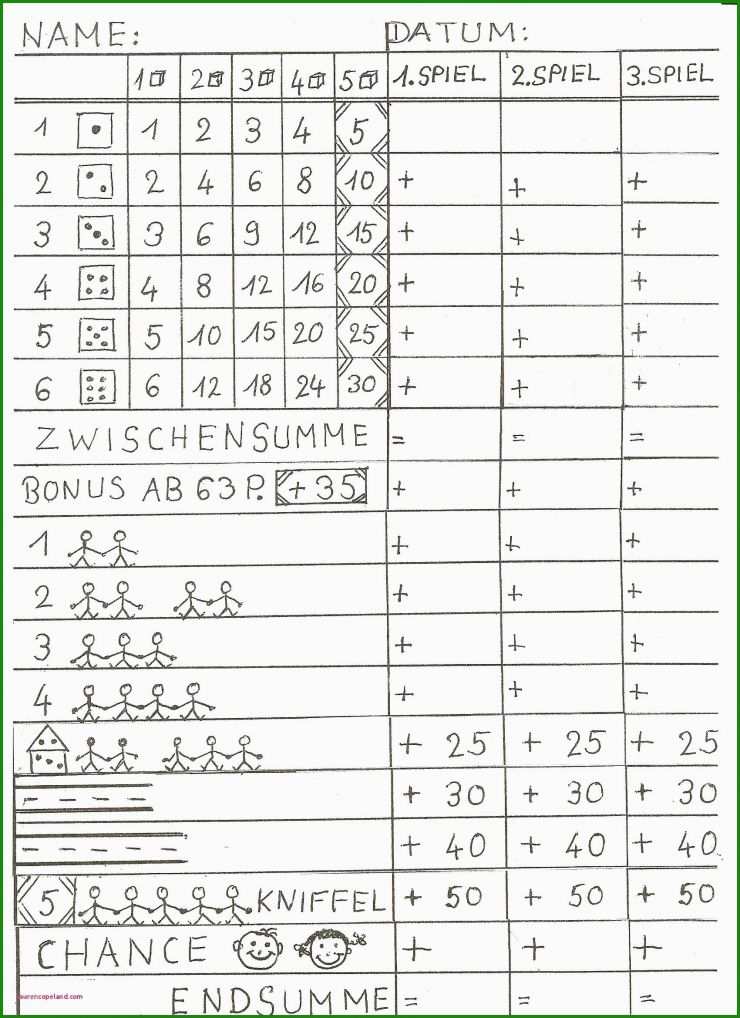 NAME: DATUM:
1 2 3 4 5 1. SPIEL 2. SPIEL 3. SPIEL
1 1 2 3 4 5
2 2 4 6 8 10 + + +
3 3 6 9 12 15 + + +
4 4 8 12 16 20 + + +
5 5 10 15 20 25 + + +
6 6 12 18 24 30 + + +
ZWISCHENSUMME = = =
BONUS AB 63 P. +35 + + +
1 + + +
2 + + +
3 + + +
4 + + +
+ 25 + 25 + 25
+ 30 + 30 + 30
+ 40 + 40 + 40
5 KNIFFEL + 50 + 50 + 50
CHANCE + + +
ENDSUMME = = =
laurencopeland.com